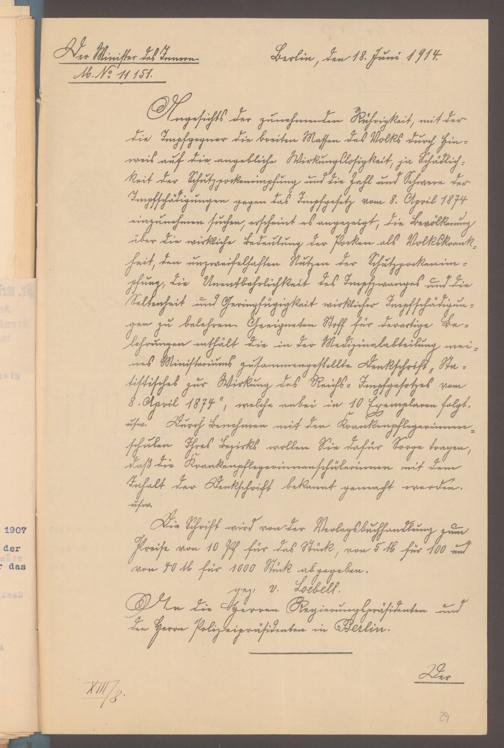 Der Minister des Innern.
M. № 11151.
Berlin, den 18. Juni 1914.
Angesichts der zunehmenden Rührigkeit, mit der
die Impfgegner die breiten Massen des Volks durch Hin-
weis auf die angebliche Wirkungslosigkeit, ja Schädlich-
keit der Schutzpockenimpfung und die Zahl und Schwere der
Impfschädigungen gegen das Impfgesetz vom 8. April 1874
einzunehmen suchen, erscheint es angezeigt, die Bevölkerung
über die wirkliche Bedeutung der Pocken als Volkskrank-
heit, den unzweifelhaften Nutzen der Schutzpockenim-
pfung, die Unentbehrlichkeit des Impfzwanges und die
Seltenheit und Geringfügigkeit wirklicher Impfschädigun-
gen zu belehren. Geeigneten Stoff für derartige Be-
lehrungen enthält die in der Medizinalabteilung mei-
nes Ministeriums zusammengestellte Denkschrift „Sta-
tistisches zur Wirkung des Reichs-Impfgesetzes vom
8. April 1874", welche anbei in 10 Exemplaren folgt.
usw. Durch Benehmen mit den Krankenpflegerinnen-
schulen Ihres Bezirks wollen Sie dafür Sorge tragen,
daß die Krankenpflegerinnenschülerinnen mit dem
Inhalt der Denkschrift bekannt gemacht werden.
usw.
Die Schrift wird von der Verlagsbuchhandlung zum
Preise von 10 Pf für das Stück, von 5 M für 100 und
von 40 M für 1000 Stück abgegeben.
gez. v. Loebell.
An die Herren Regierungspräsidenten und
den Herrn Polizeipräsidenten in Berlin.
Der
XIII/8.
29
1907
der
das